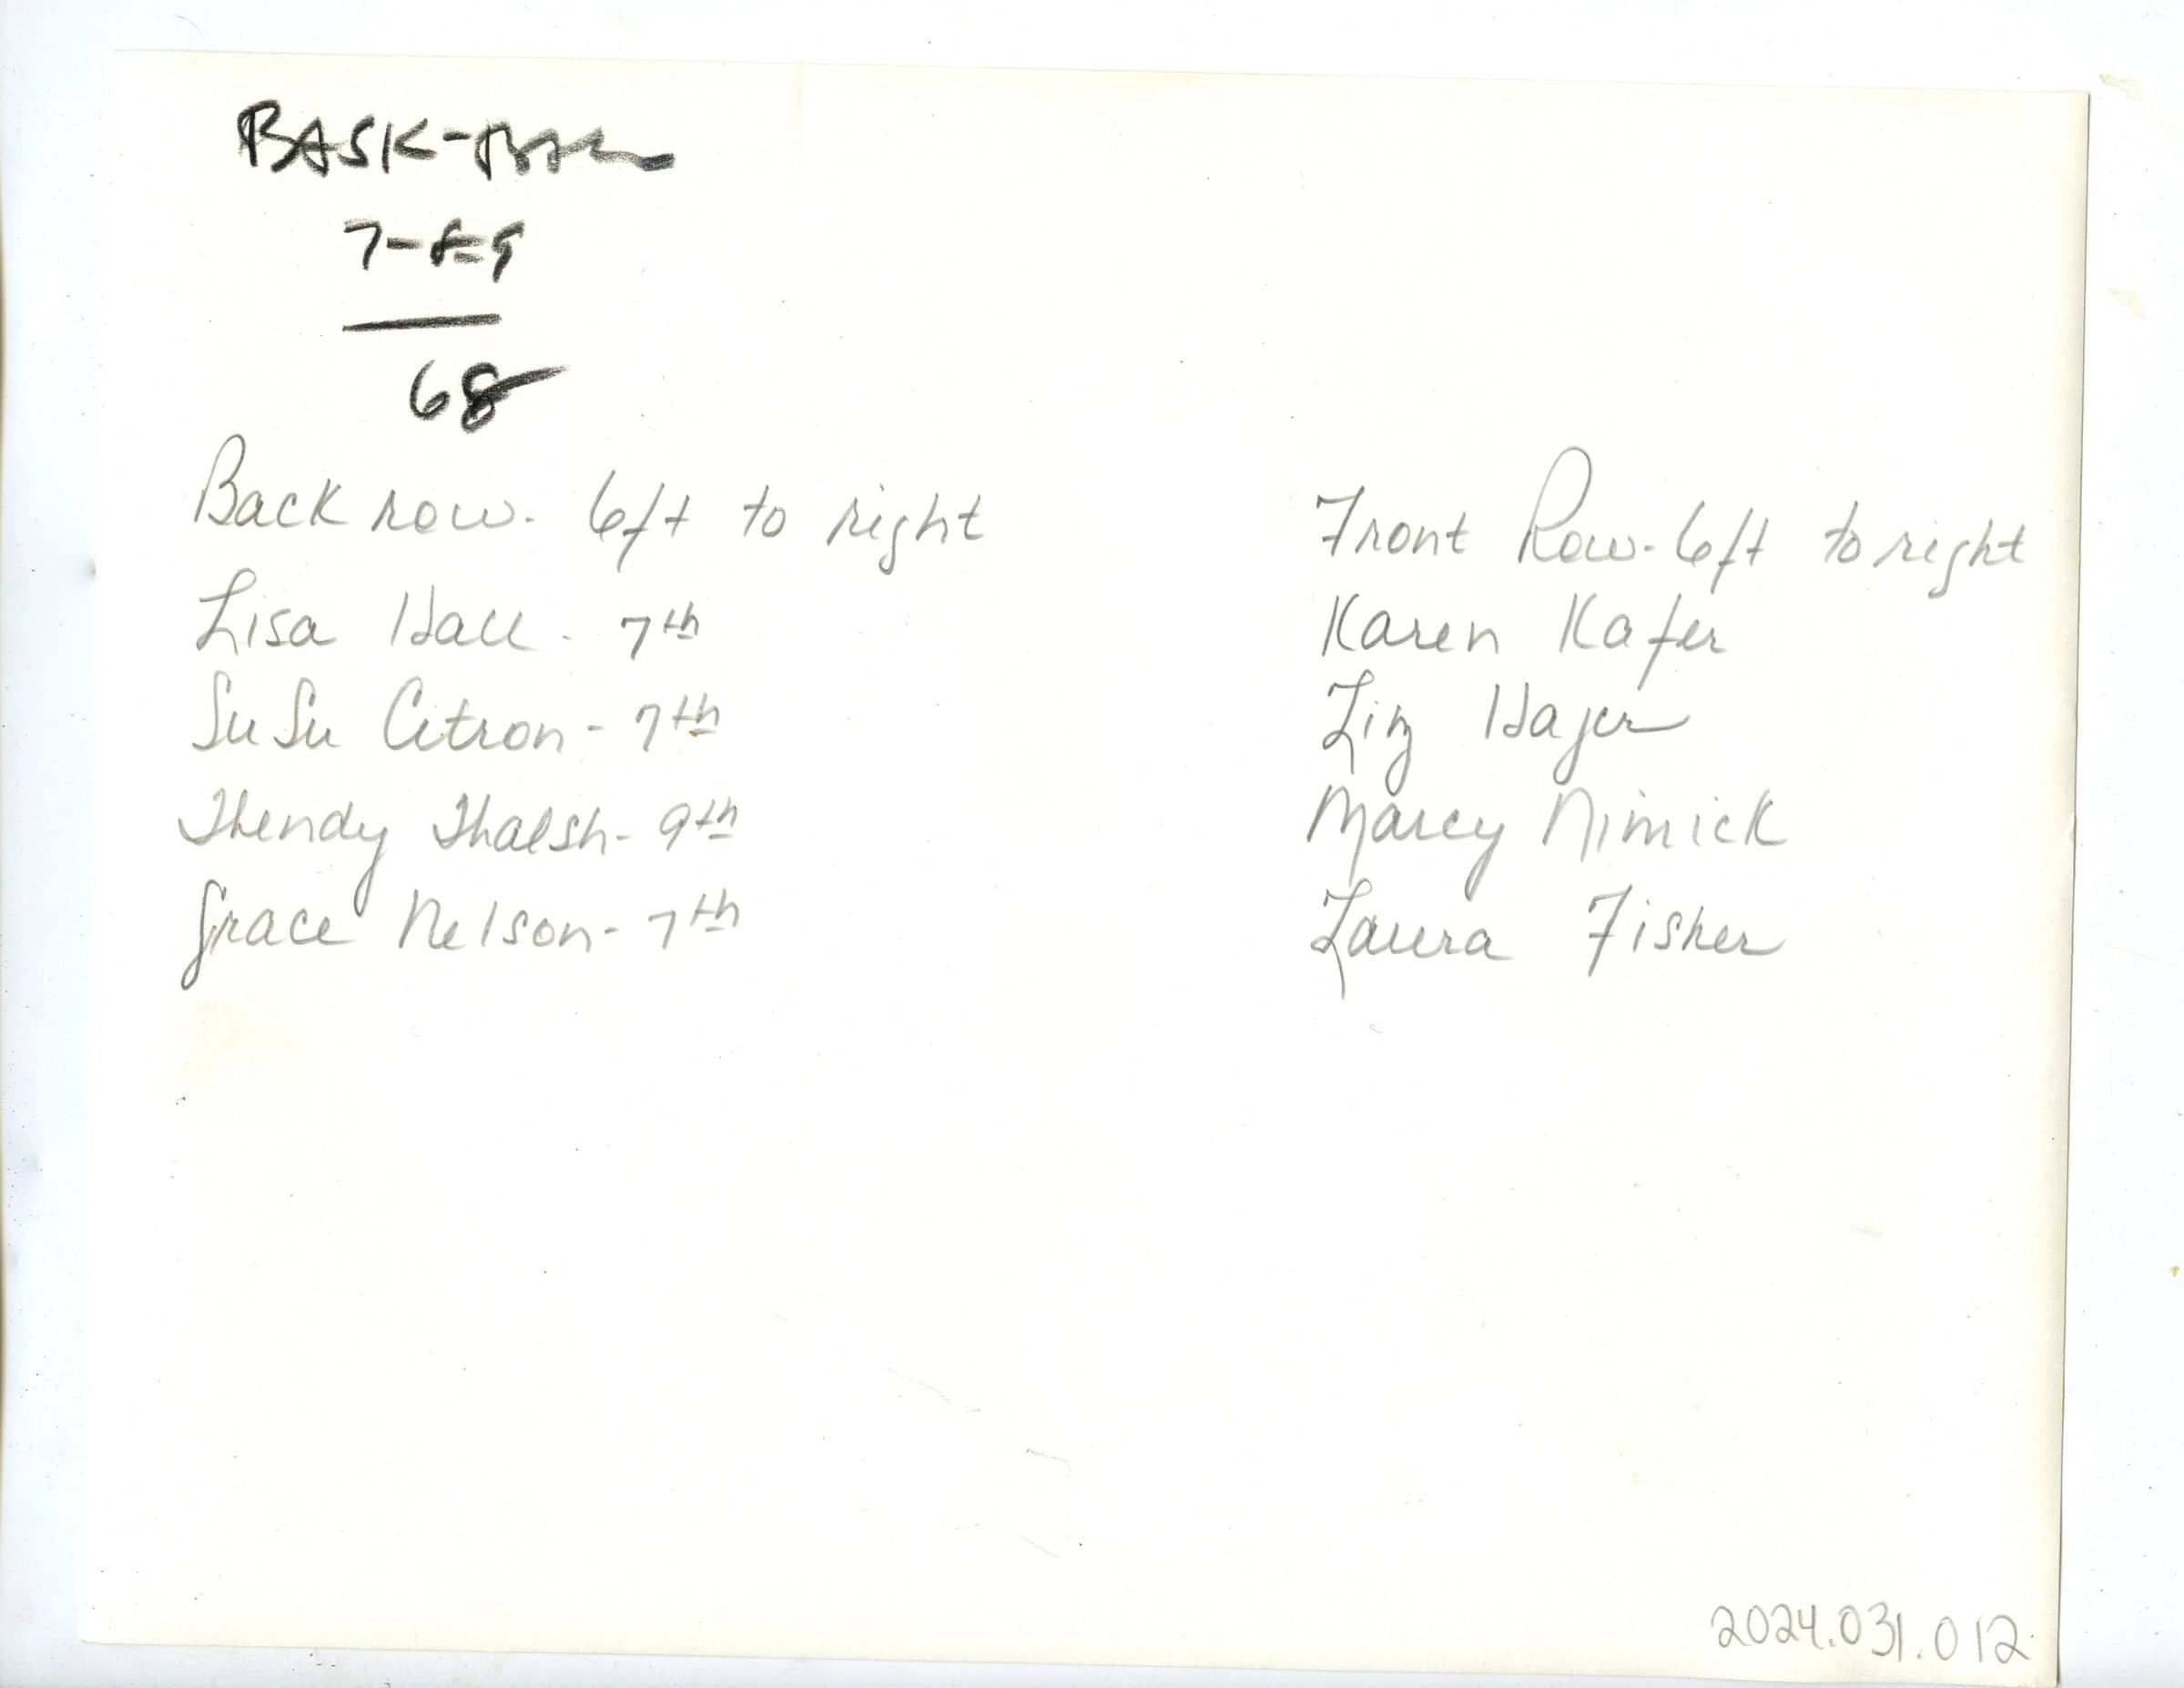 BASK-BALL
7-8-9
68
Back row - left to right
Lisa Hall - 7th
SuSu Citron - 7th
Wendy Walsh - 9th
Grace Nelson - 7th
Front Row - left to right
Karen Kafer
Liz Hager
Marcy Nimick
Laura Fisher
2024.031.012